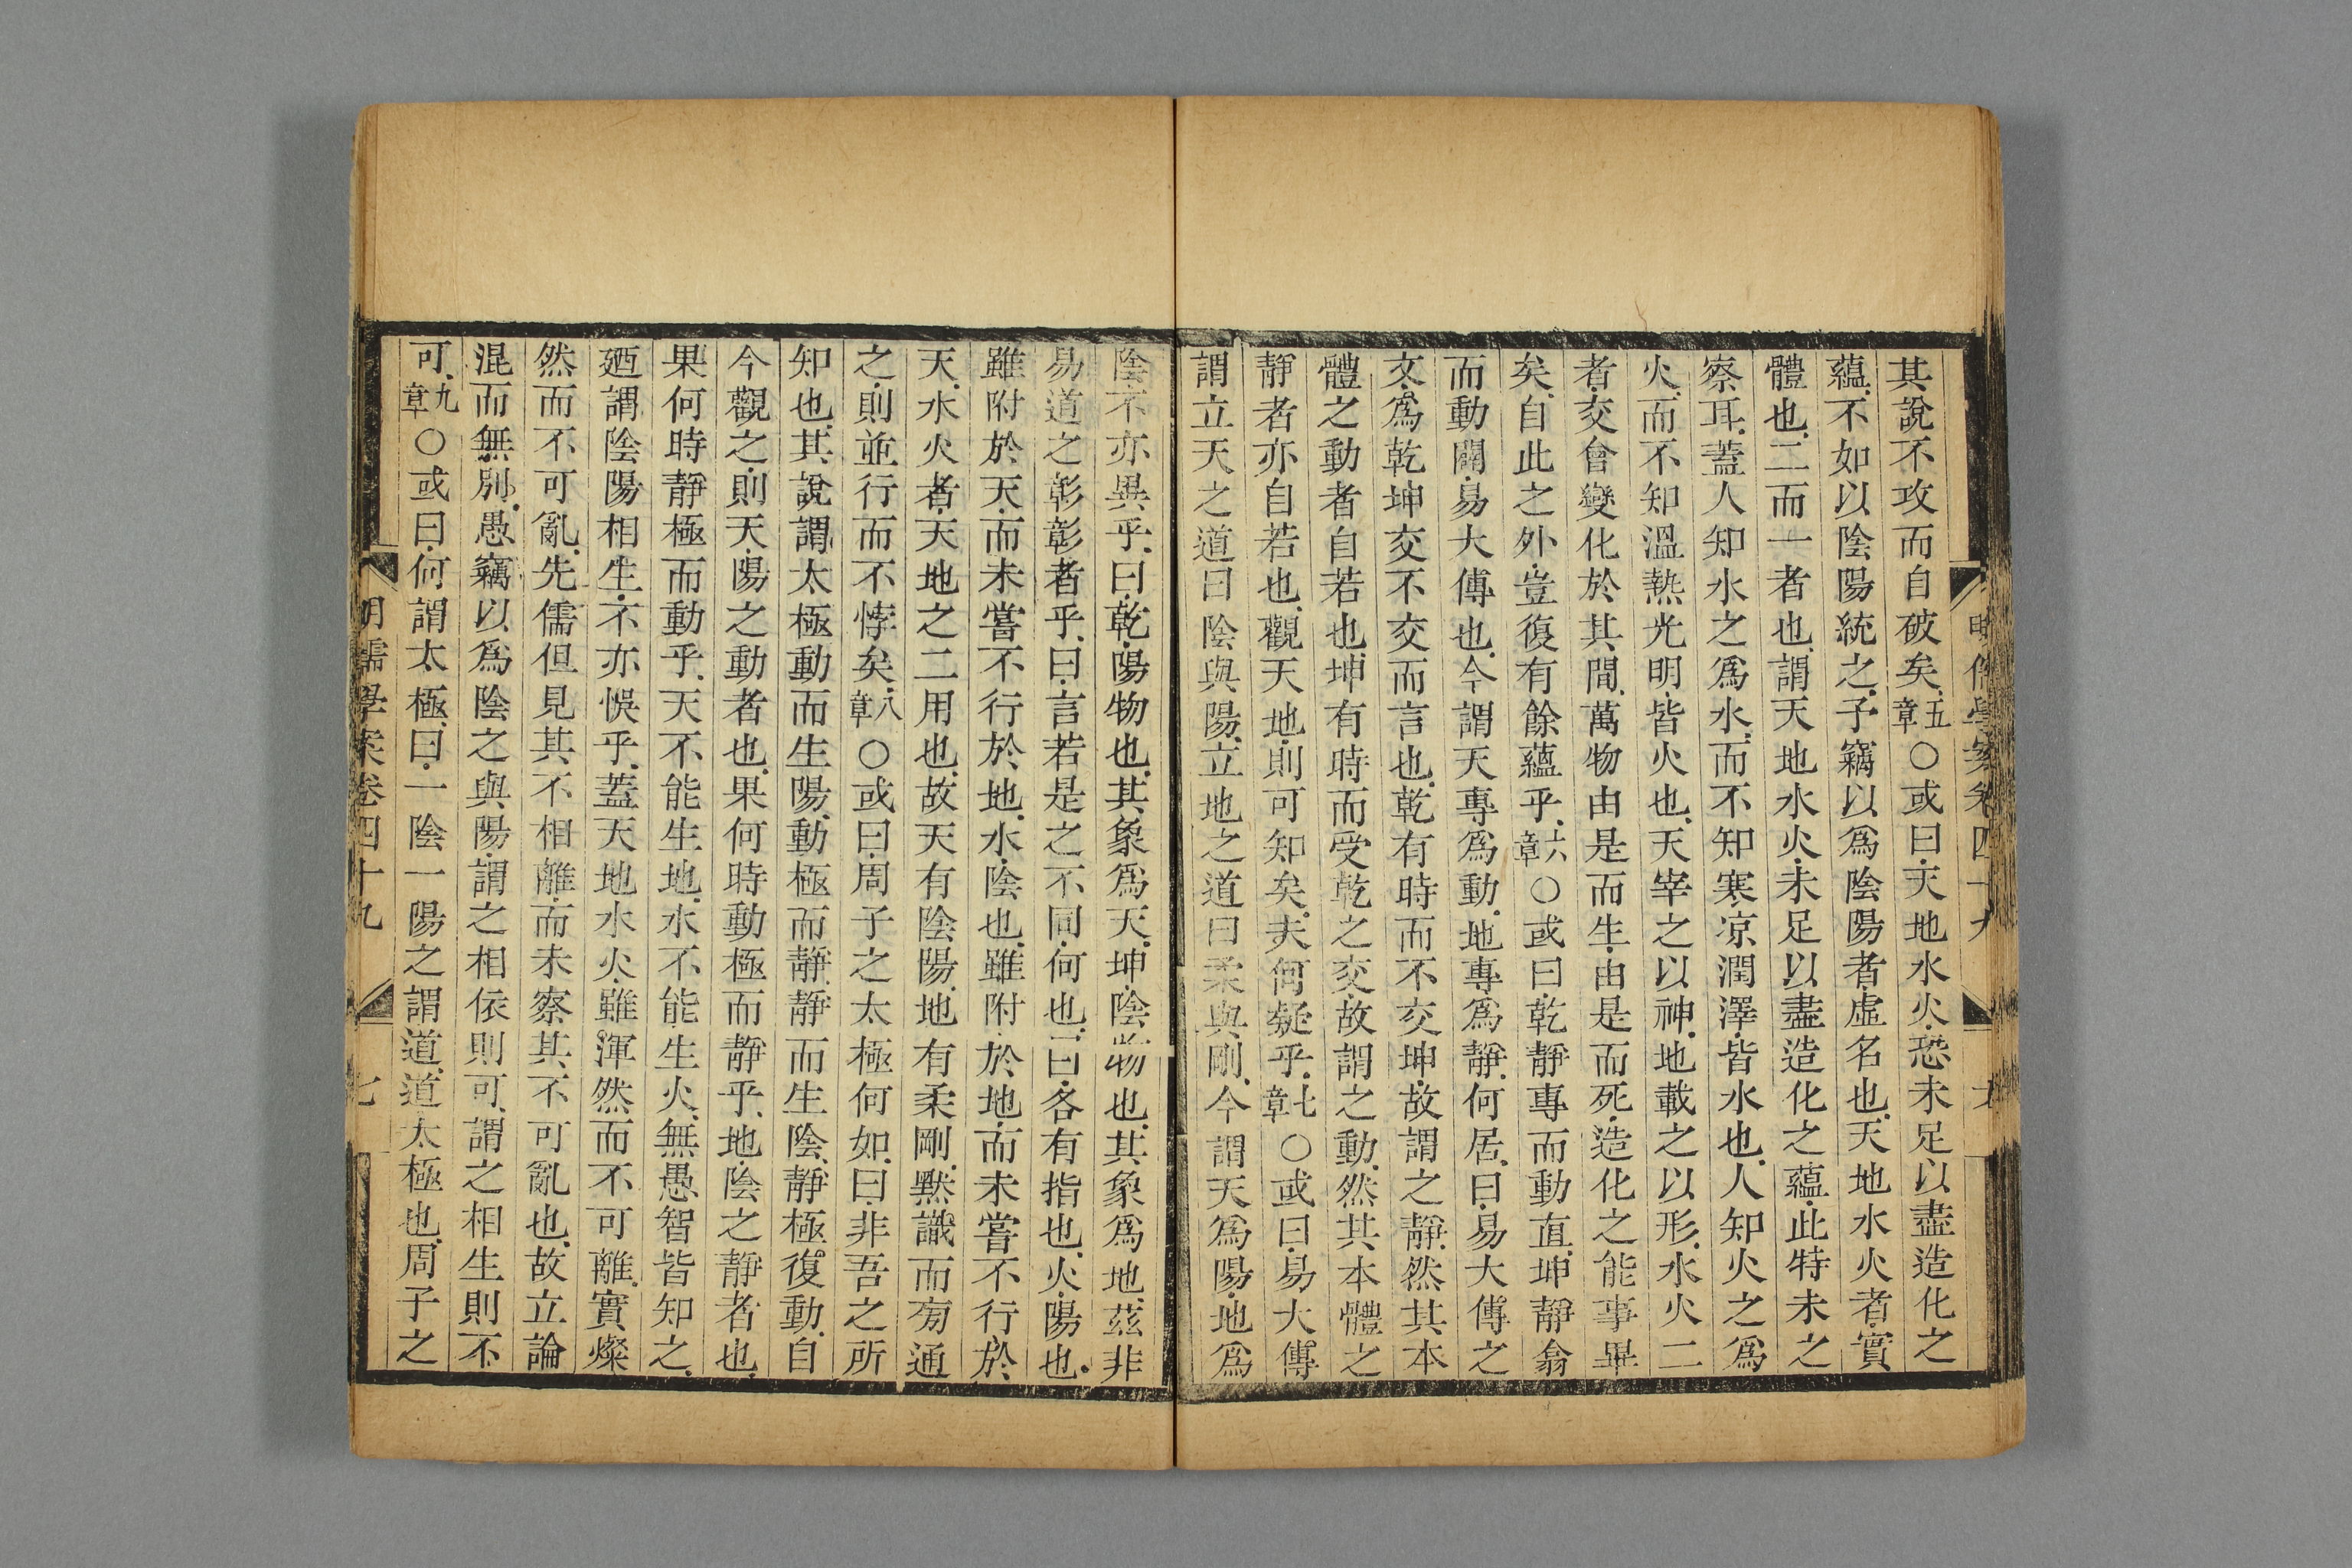 其說不攻而自破矣五章○或曰天地水火恐未足以盡造化之
蘊不如以陰陽統之予竊以爲陰陽者虛名也天地水火者實
體也二而一者也謂天地水火未足以盡造化之蘊此特未之
察耳蓋人知水之爲水而不知寒凉潤澤皆水也人知火之爲
火而不知溫熱光明皆火也天宰之以神地載之以形水火二
者交會變化於其間萬物由是而生由是而死造化之能事畢
矣自此之外豈復有餘蘊乎六章○或曰乾靜專而動直坤靜翕
而動闢易大傳也今謂天專爲動地專爲靜何居曰易大傳之
文爲乾坤交不交而言也乾有時而不交坤故謂之靜然其本
體之動者自若也坤有時而受乾之交故謂之動然其本體之
靜者亦自若也觀天地則可知矣夫何疑乎七章○或曰易大傳
謂立天之道曰陰與陽立地之道曰柔與剛今謂天爲陽地爲
陰不亦異乎曰乾陽物也其象爲天坤陰物也其象爲地茲非
易道之彰彰者乎曰言若是之不同何也曰各有指也火陽也
雖附於天而未嘗不行於地水陰也雖附於地而未嘗不行於
天水火者天地之二用也故天有陰陽地有柔剛默識而旁通
之則並行而不悖矣八章○或曰周子之太極何如曰非吾之所
知也其說謂太極動而生陽動極而靜靜而生陰靜極復動自
今觀之則天陽之動者也果何時動極而靜乎地陰之靜者也
果何時靜極而動乎天不能生地水不能生火無愚智皆知之
廼謂陰陽相生不亦悞乎蓋天地水火雖渾然而不可離實燦
然而不可亂先儒但見其不相離而未察其不可亂也故立論
混而無別愚竊以爲陰之與陽謂之相依則可謂之相生則不
可九章○或曰何謂太極曰一陰一陽之謂道道太極也周子之
明儒學案卷四十九
七